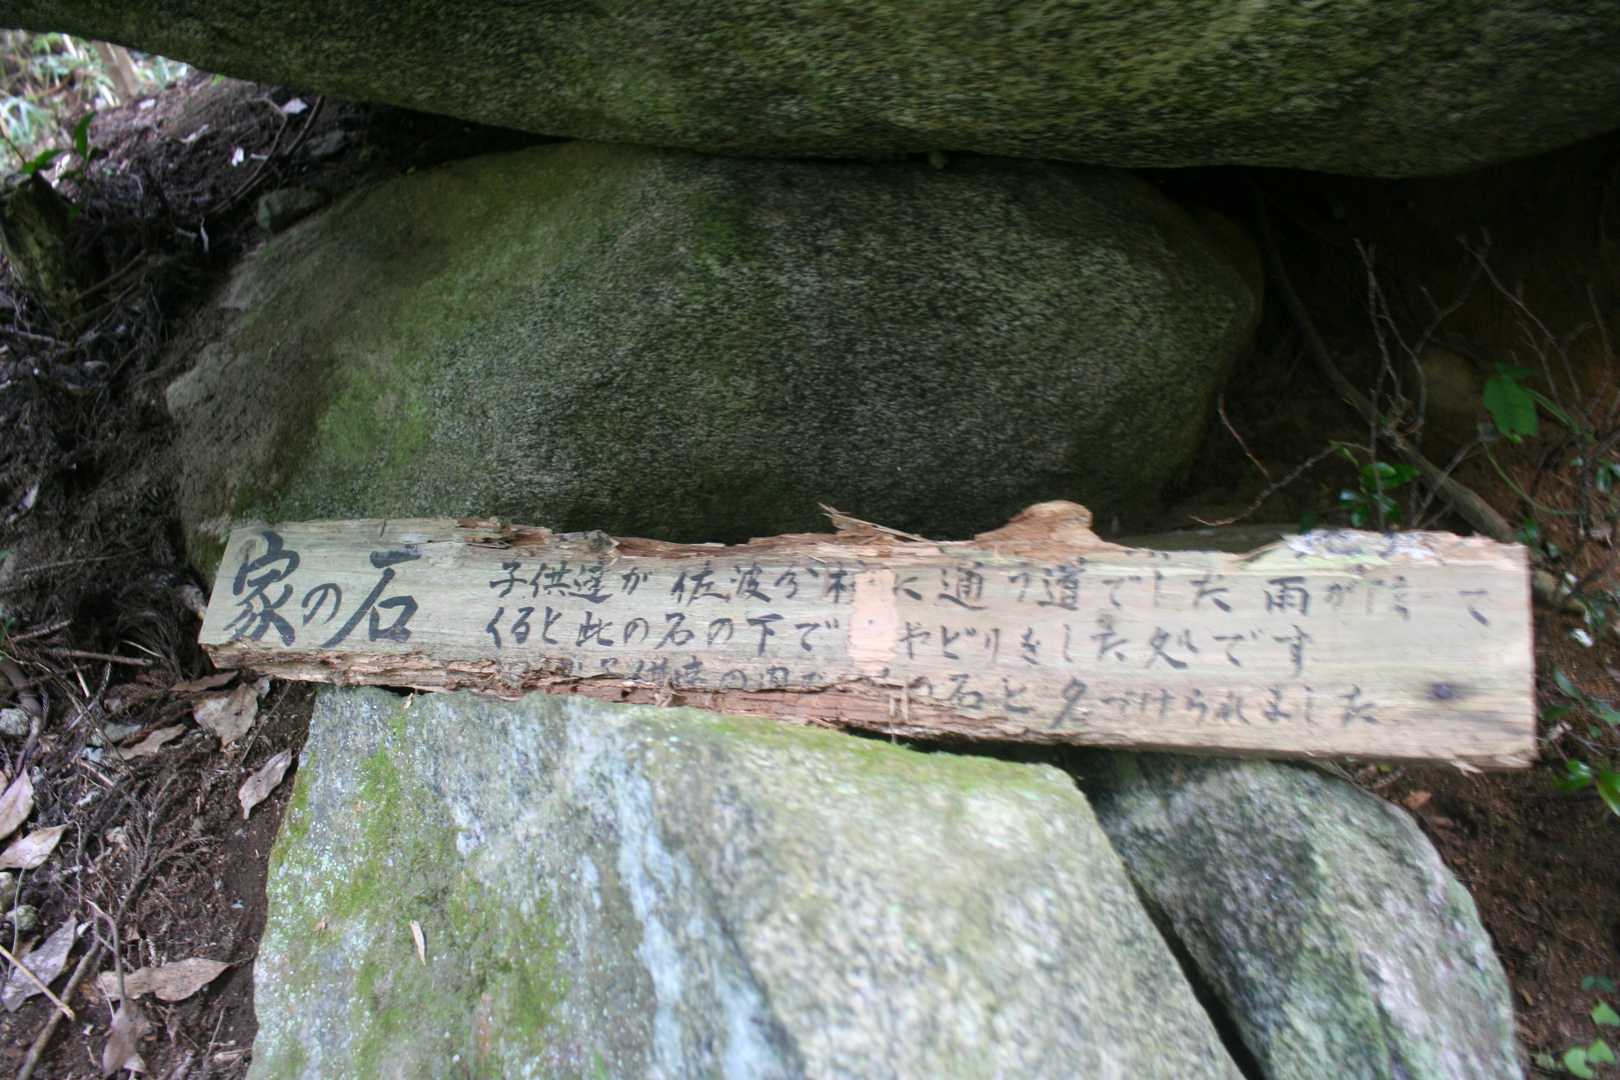 家の石
子供達が佐波分校に通う道でした雨が降って
くると此の石の下で やどりをした処です
子供達の の石と名づけられました